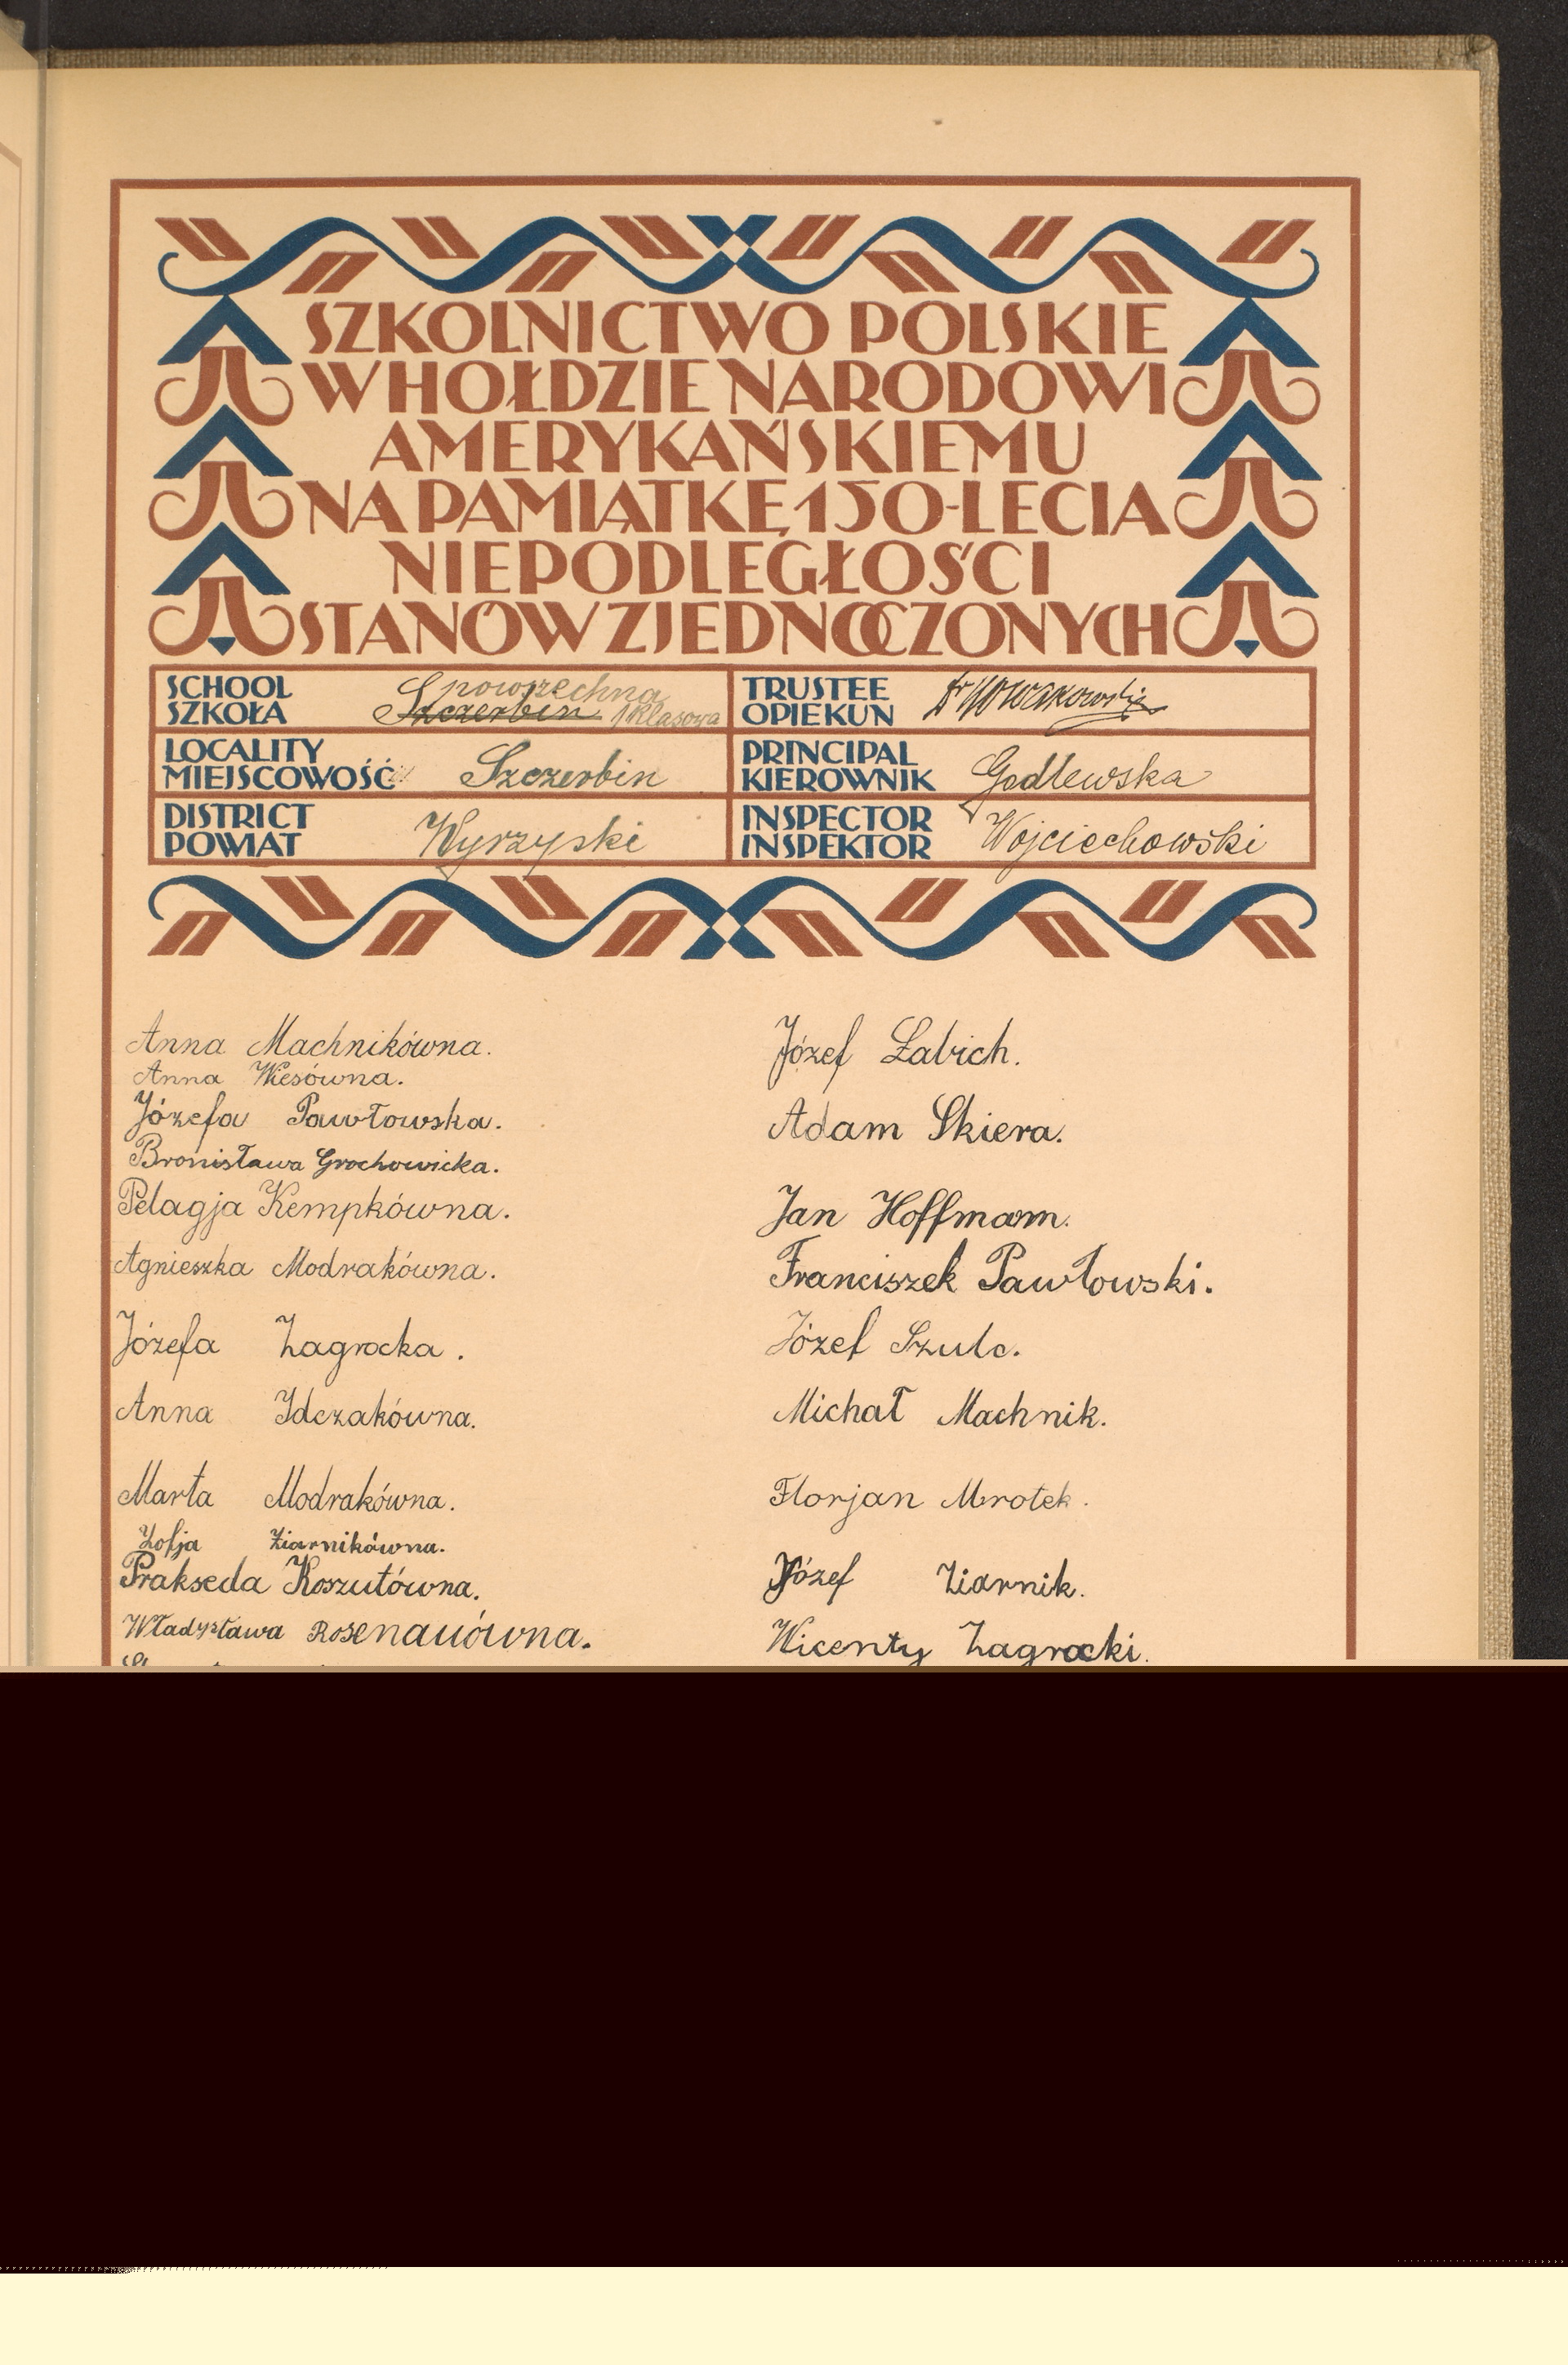 SZKOLNICTWO POLSKIE
W HOŁDZIE NARODOWI
AMERYKAŃSKIEMU
NA PAMIĄTKĘ 150-LECIA
NIEPODLEGŁOŚCI
STANÓW ZJEDNOCZONYCH
SCHOOL
SZKOŁA
powszechna
Szczerbin 1 klasowa
TRUSTEE
OPIEKUN
Nowakowski
LOCALITY
MIEJSCOWOŚĆ
Szczerbin
PRINCIPAL
KIEROWNIK
Godlewska
DISTRICT
POWIAT
Wyrzyski
INSPECTOR
INSPEKTOR
Wojciechowski
Anna Machnikówna.
Anna Wiesówna.
Józefa Pawłowska.
Bronisława Grochowicka.
Pelagja Kempkówna.
Agnieszka Modrakówna.
Józefa Zagrocka.
Anna Idczakówna.
Marta Modrakówna.
Zofja Ziarnikówna.
Prakseda Koszutówna.
Władysława Rosenauówna.
Józef Łabich.
Adam Skiera.
Jan Hoffmann.
Franciszek Pawłowski.
Józef Szulc.
Michał Machnik.
Florjan Mrotek.
Józef Ziarnik.
Wicenty Zagrocki.